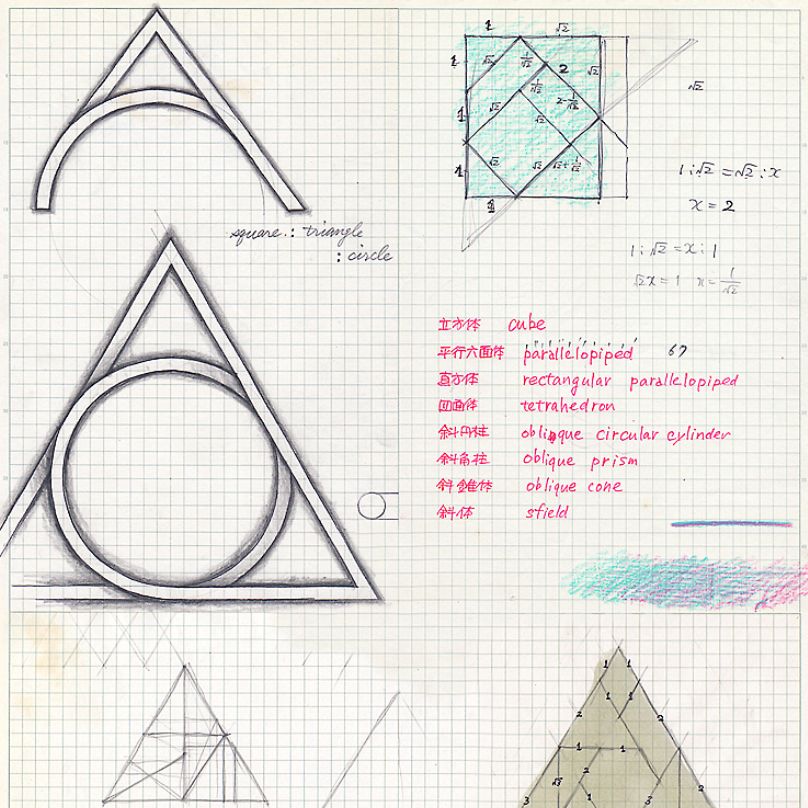 1 √2
1 √2 1/√2 2 √2
√2
1/√2
1 √2 √2 2-1/√2
1 √2 √2 √2+1/√2
1
1:√2=√2:x
x=2
1:√2=x:1
√2x=1 x=1/√2
square : triangle
: circle
立方体 cube
平行六面体 parallelopiped 67
直方体 rectangular parallelopiped
四面体 tetrahedron
斜円柱 oblique circular cylinder
斜角柱 oblique prism
斜錐体 oblique cone
斜体 sfield
1 1
1 1
2 2
1 1
√3 2 2
3 1 3